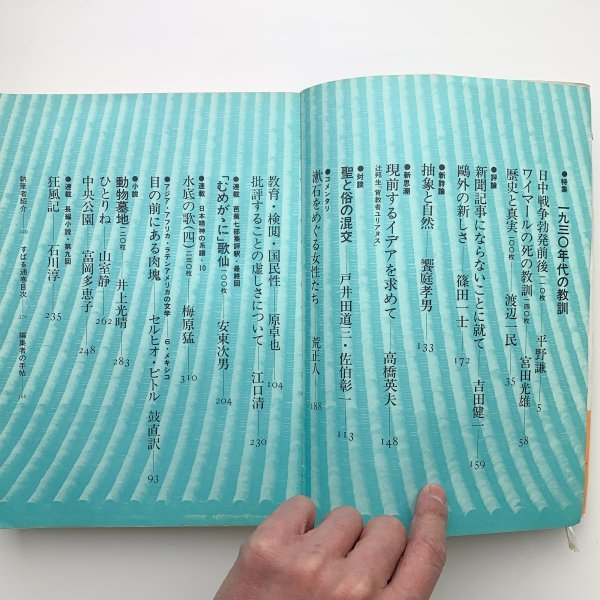 ●特集 一九三〇年代の教訓
日中戦争勃発前後 一一〇枚 平野謙 5
ワイマールの死の教訓 一四〇枚 宮田光雄 58
歴史と真実 一〇〇枚 渡辺一民 35
●評論
新聞記事にならないことに就て 吉田健一 159
鷗外の新しさ 篠田一士 172
●新評論
抽象と自然 饗庭孝男 133
●新思潮
現前するイデアを求めて 高橋英夫 148
辻邦生「背教者ユリアヌス」
●対談
聖と俗の混交 戸井田道三・佐伯彰一 113
●コメンタリ
漱石をめぐる女性たち 荒正人 188
教育・検閲・国民性 原卓也 104
批評することの虚しさについて 江口清 230
●連載 芭蕉七部集評釈 最終回
「むめがゝに」歌仙 一〇〇枚 安東次男 204
●連載 日本精神の系譜・10
水底の歌(四) 一三〇枚 梅原猛 310
●アジア・アフリカ・ラテンアメリカの文学 6・メキシコ
目の前にある肉塊 セルヒオ・ピトル 鼓直訳 93
●小説
動物墓地 一二〇枚 井上光晴 283
ひとりね 山室静 262
中央公園 富岡多恵子 248
●連載 長編小説・第九回
狂風記 石川淳 235
執筆者紹介 すばる通巻目次 370 編集者の手帖